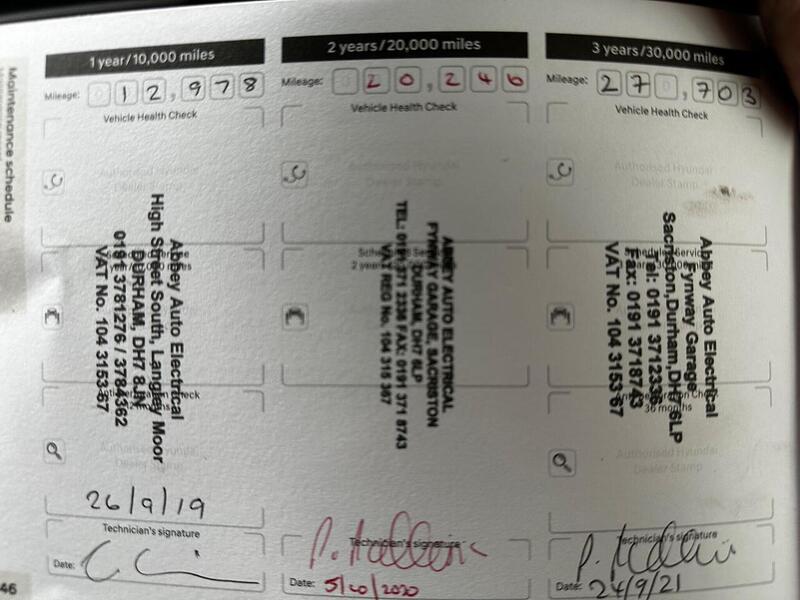 Maintenance schedule
1 year/10,000 miles
Mileage: 012,978
Vehicle Health Check
Abbey Auto Electrical
High Street South, Langley Moor
DURHAM, DH7 8JN
0191 3781276 / 3784362
VAT No. 104 3153 67
26/9/19
Technician's signature
Date:
2 years/20,000 miles
Mileage: 020,246
Vehicle Health Check
Authorised Hyundai
Dealer Stamp
ABBEY AUTO ELECTRICAL
FYNWAY GARAGE, SACRISTON
DURHAM, DH7 6LP
TEL: 0191 371 2338 FAX: 0191 371 8743
VAT REG No. 104 315 367
Technician's signature
Date: 5/10/2020
3 years/30,000 miles
Mileage: 270,703
Vehicle Health Check
Authorised Hyundai
Dealer Stamp
Abbey Auto Electrical
Fynway Garage
Sacriston, Durham, DH7 6LP
Tel: 0191 3712338
Fax: 0191 3718743
VAT No. 104 3153 67
36 months
Authorised Hyundai
Dealer Stamp
Technician's signature
Date: 24/9/21
46